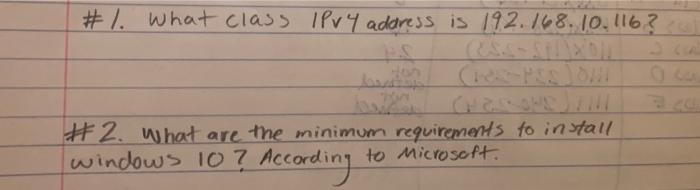 #1. What class IPv4 address is 192.168.10.116?
#2. What are the minimum requirements to install
windows 10? According to Microsoft.